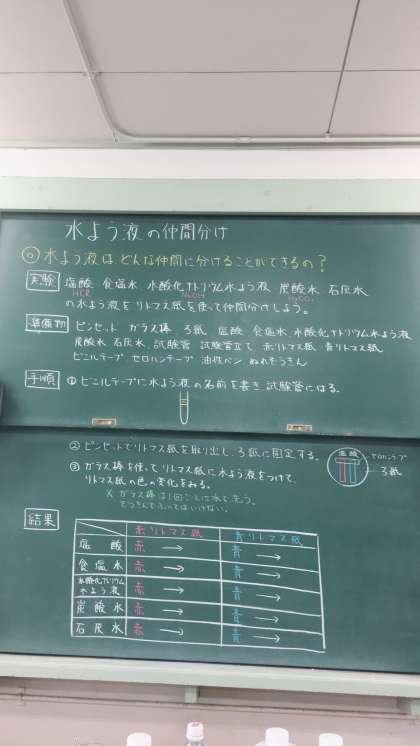 水よう液の仲間分け
◎水よう液は、どんな仲間に分けることができるの？
実験 塩酸 食塩水 水酸化ナトリウム水よう液 炭酸水 石灰水
HCR NaOH H₂CO₃
の水よう液をリトマス紙を使って仲間分けしよう。
準備物 ピンセット ガラス棒 ろ紙 塩酸 食塩水 水酸化ナトリウム水よう液
炭酸水 石灰水 試験管 試験管立て 赤リトマス紙 青リトマス紙
ビニルテープ セロハンテープ 油性ペン ぬれぞうきん
手順 ① ビニルテープに水よう液の名前を書き、試験管にはる。
② ピンセットでリトマス紙を取り出し、ろ紙に固定する。
塩酸 セロハンテープ
ろ紙
③ ガラス棒を使ってリトマス紙に水よう液をつけて、
リトマス紙の色の変化をみる。
※ ガラス棒は1回ごとに水で洗う。
ぞうきんでふいてはいけない。
結果
赤リトマス紙 青リトマス紙
塩酸 赤 → 青 →
食塩水 赤 → 青 →
水酸化ナトリウム
水よう液 赤 → 青 →
炭酸水 赤 → 青 →
石灰水 赤 → 青 →